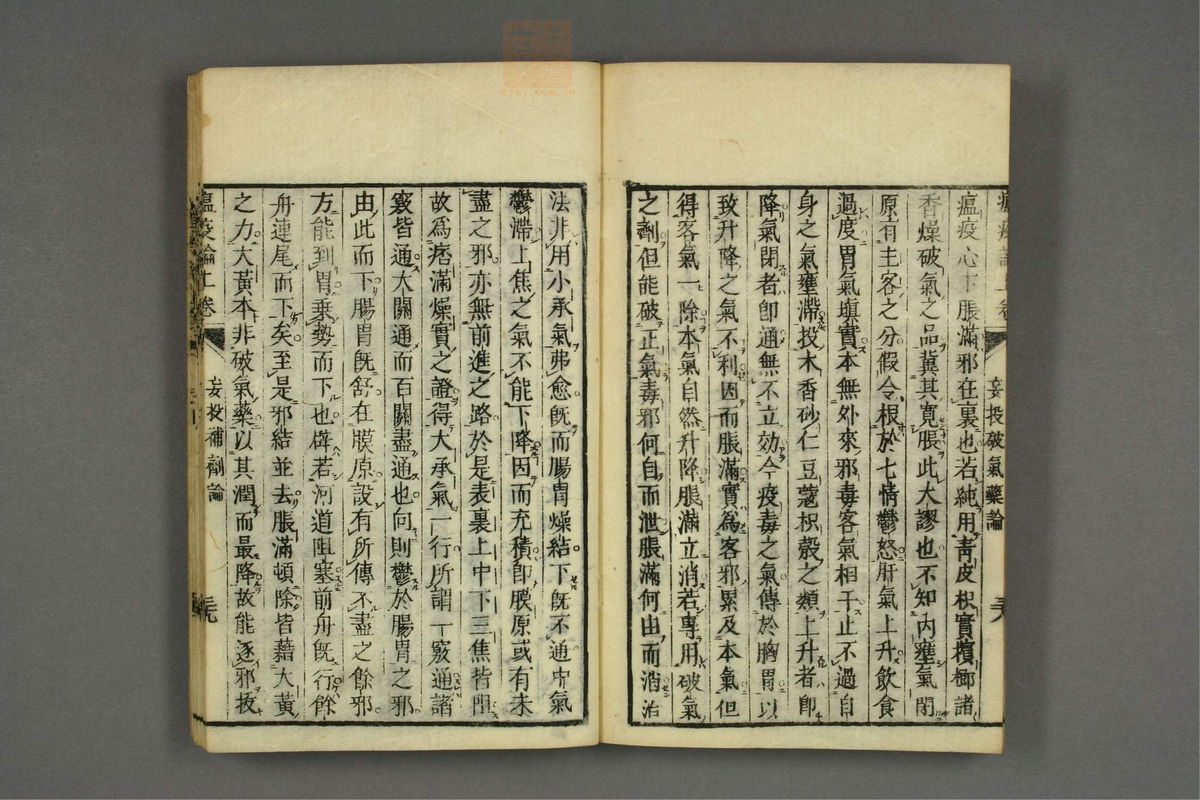 瘟疫論上卷
妄投破氣藥論
瘟疫心下脹滿邪在裏也若純用青皮枳實檳榔諸
香燥破氣之品冀其寛脹此大謬也不知内壅氣閉
原有主客之分假令根於七情鬱怒肝氣上升飲食
過度胃氣塡實本無外來邪毒客氣相干止不過自
身之氣壅滯投木香砂仁豆蔲枳殼之類上升者卽
降氣閉者卽通無不立効今疫毒之氣傳於胸胃以
致升降之氣不利因而脹滿實爲客邪累及本氣但
得客氣一除本氣自然升降脹滿立消若專用破氣
之劑但能破正氣毒邪何自而泄脹滿何由而消治
法非用小承氣弗愈旣而腸胃燥結下旣不通中氣
鬱滯上焦之氣不能下降因而充積卽膜原或有未
盡之邪亦無前進之路於是表裏上中下三焦皆阻
故爲痞滿燥實之證得大承氣一行所謂一竅通諸
竅皆通大關通而百關盡通也向則鬱於腸胃之邪
由此而下腸胃旣舒在膜原設有所傳不盡之餘邪
方能到胃乗勢而下也譬若河道阻塞前舟旣行餘
舟連尾而下矣至是邪結並去脹滿頓除皆藉大黃
之力大黃本非破氣藥以其潤而最降故能逐邪拔
瘟疫論上卷
妄投補劑論